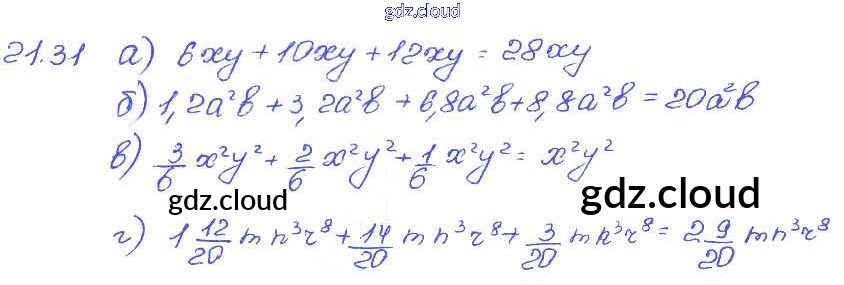 gdz.cloud
21.31 а) 6xy + 10xy + 12xy = 28xy
б) 1,2a²b + 3,2a²b + 6,8a²b + 8,8a²b = 20a²b
в) 3/6 x²y² + 2/6 x²y² + 1/6 x²y² = x²y²
gdz.cloud gdz.cloud
г) 1 12/20 mn³r⁸ + 14/20 mn³r⁸ + 3/20 mn³r⁸ = 2 9/20 mn³r⁸